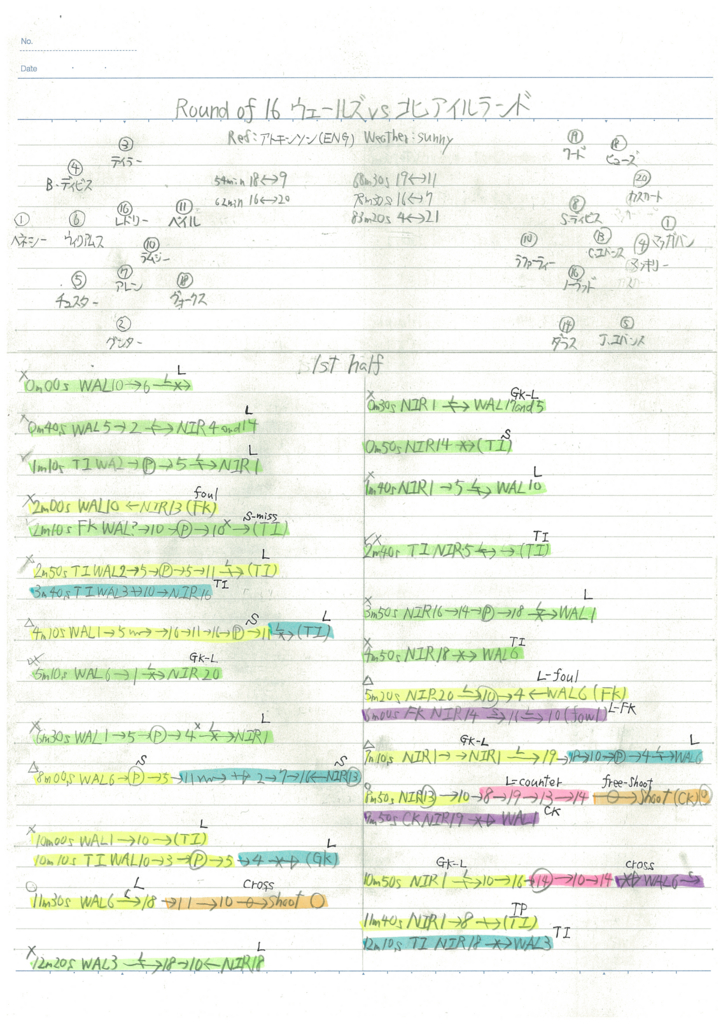 No.
Date
Round of 16 ウェールズ vs 北アイルランド
Ref:アトキンソン(ENG) Weather:sunny
③ テイラー
④ B・デイビス
① ヘネシー
⑥ ウィリアムス
⑯ レドリー
⑪ ベイル
⑩ ラムジー
⑤ チェスター
⑦ アレン
⑱ ヴォークス
② ガンター
54min 18↔9
62min 16↔20
68m30s 19↔11
78m30s 16↔7
83m20s 4↔21
⑲ ワード
⑱ ヒューズ
⑳ カスカート
⑧ S・デイビス
① マクガバン
⑬ C.エバンス
④
⑩ ラファーティー
⑯ ノーウッド
⑭ ダラス
⑤ J.エバンス
1st half
0m00s WAL10→6 L
0m40s WAL5→2 ↔ NIR4 and 14 L
1m10s TI WAL2→Ⓟ→5 NIR1 L
2m00s WAL10 ←NIR13 (FK) foul
2m10s FK WAL?→10 Ⓟ→10 →(TI) S-miss
2m50s TI WAL2→5→Ⓟ→5→11 →(TI) L
3m40s TI WAL3→10→NIR16 TI
4m10s WAL1→5 →16→11→16→Ⓟ→11 →(TI) S L
5m10s WAL6→1 NIR20 GK-L
6m30s WAL1→5→Ⓟ→4 NIR1 L
8m00s WAL6→Ⓟ→5→11 2→7→16←NIR⑬ S S
10m00s WAL1→10→(TI) L
10m10s TI WAL10→3→Ⓟ→5→4 (GK) L
11m30s WAL6→18→11→10→shoot L cross
12m20s WAL3→18→10←NIR18 L
0m30s NIR1 ↔ WAL17and5 GK-L
0m50s NIR14 →(TI) S
1m40s NIR1→5 WAL10 L
2m40s TI NIR5 →(TI) TI
3m50s NIR16→14→Ⓟ→18 WAL1 L
4m50s NIR18 → WAL6 TI
5m20s NIR20→10→4←WAL6 (FK) L-foul
6m00s FK NIR14 10(foul) L-FK
7m10s NIR1→NIR1→19 10→Ⓟ→4 WAL6 GK-L L
8m50s NIR⑬→10→8→19→13→14 shoot (CK) L=counter free-shoot
9m50s CK NIR19 WAL1 CK
10m50s NIR1→10→16→⑭→10→14 WAL6 GK-L cross
11m40s NIR1→8→(TI) TP
12m10s TI NIR18 WAL3 TI